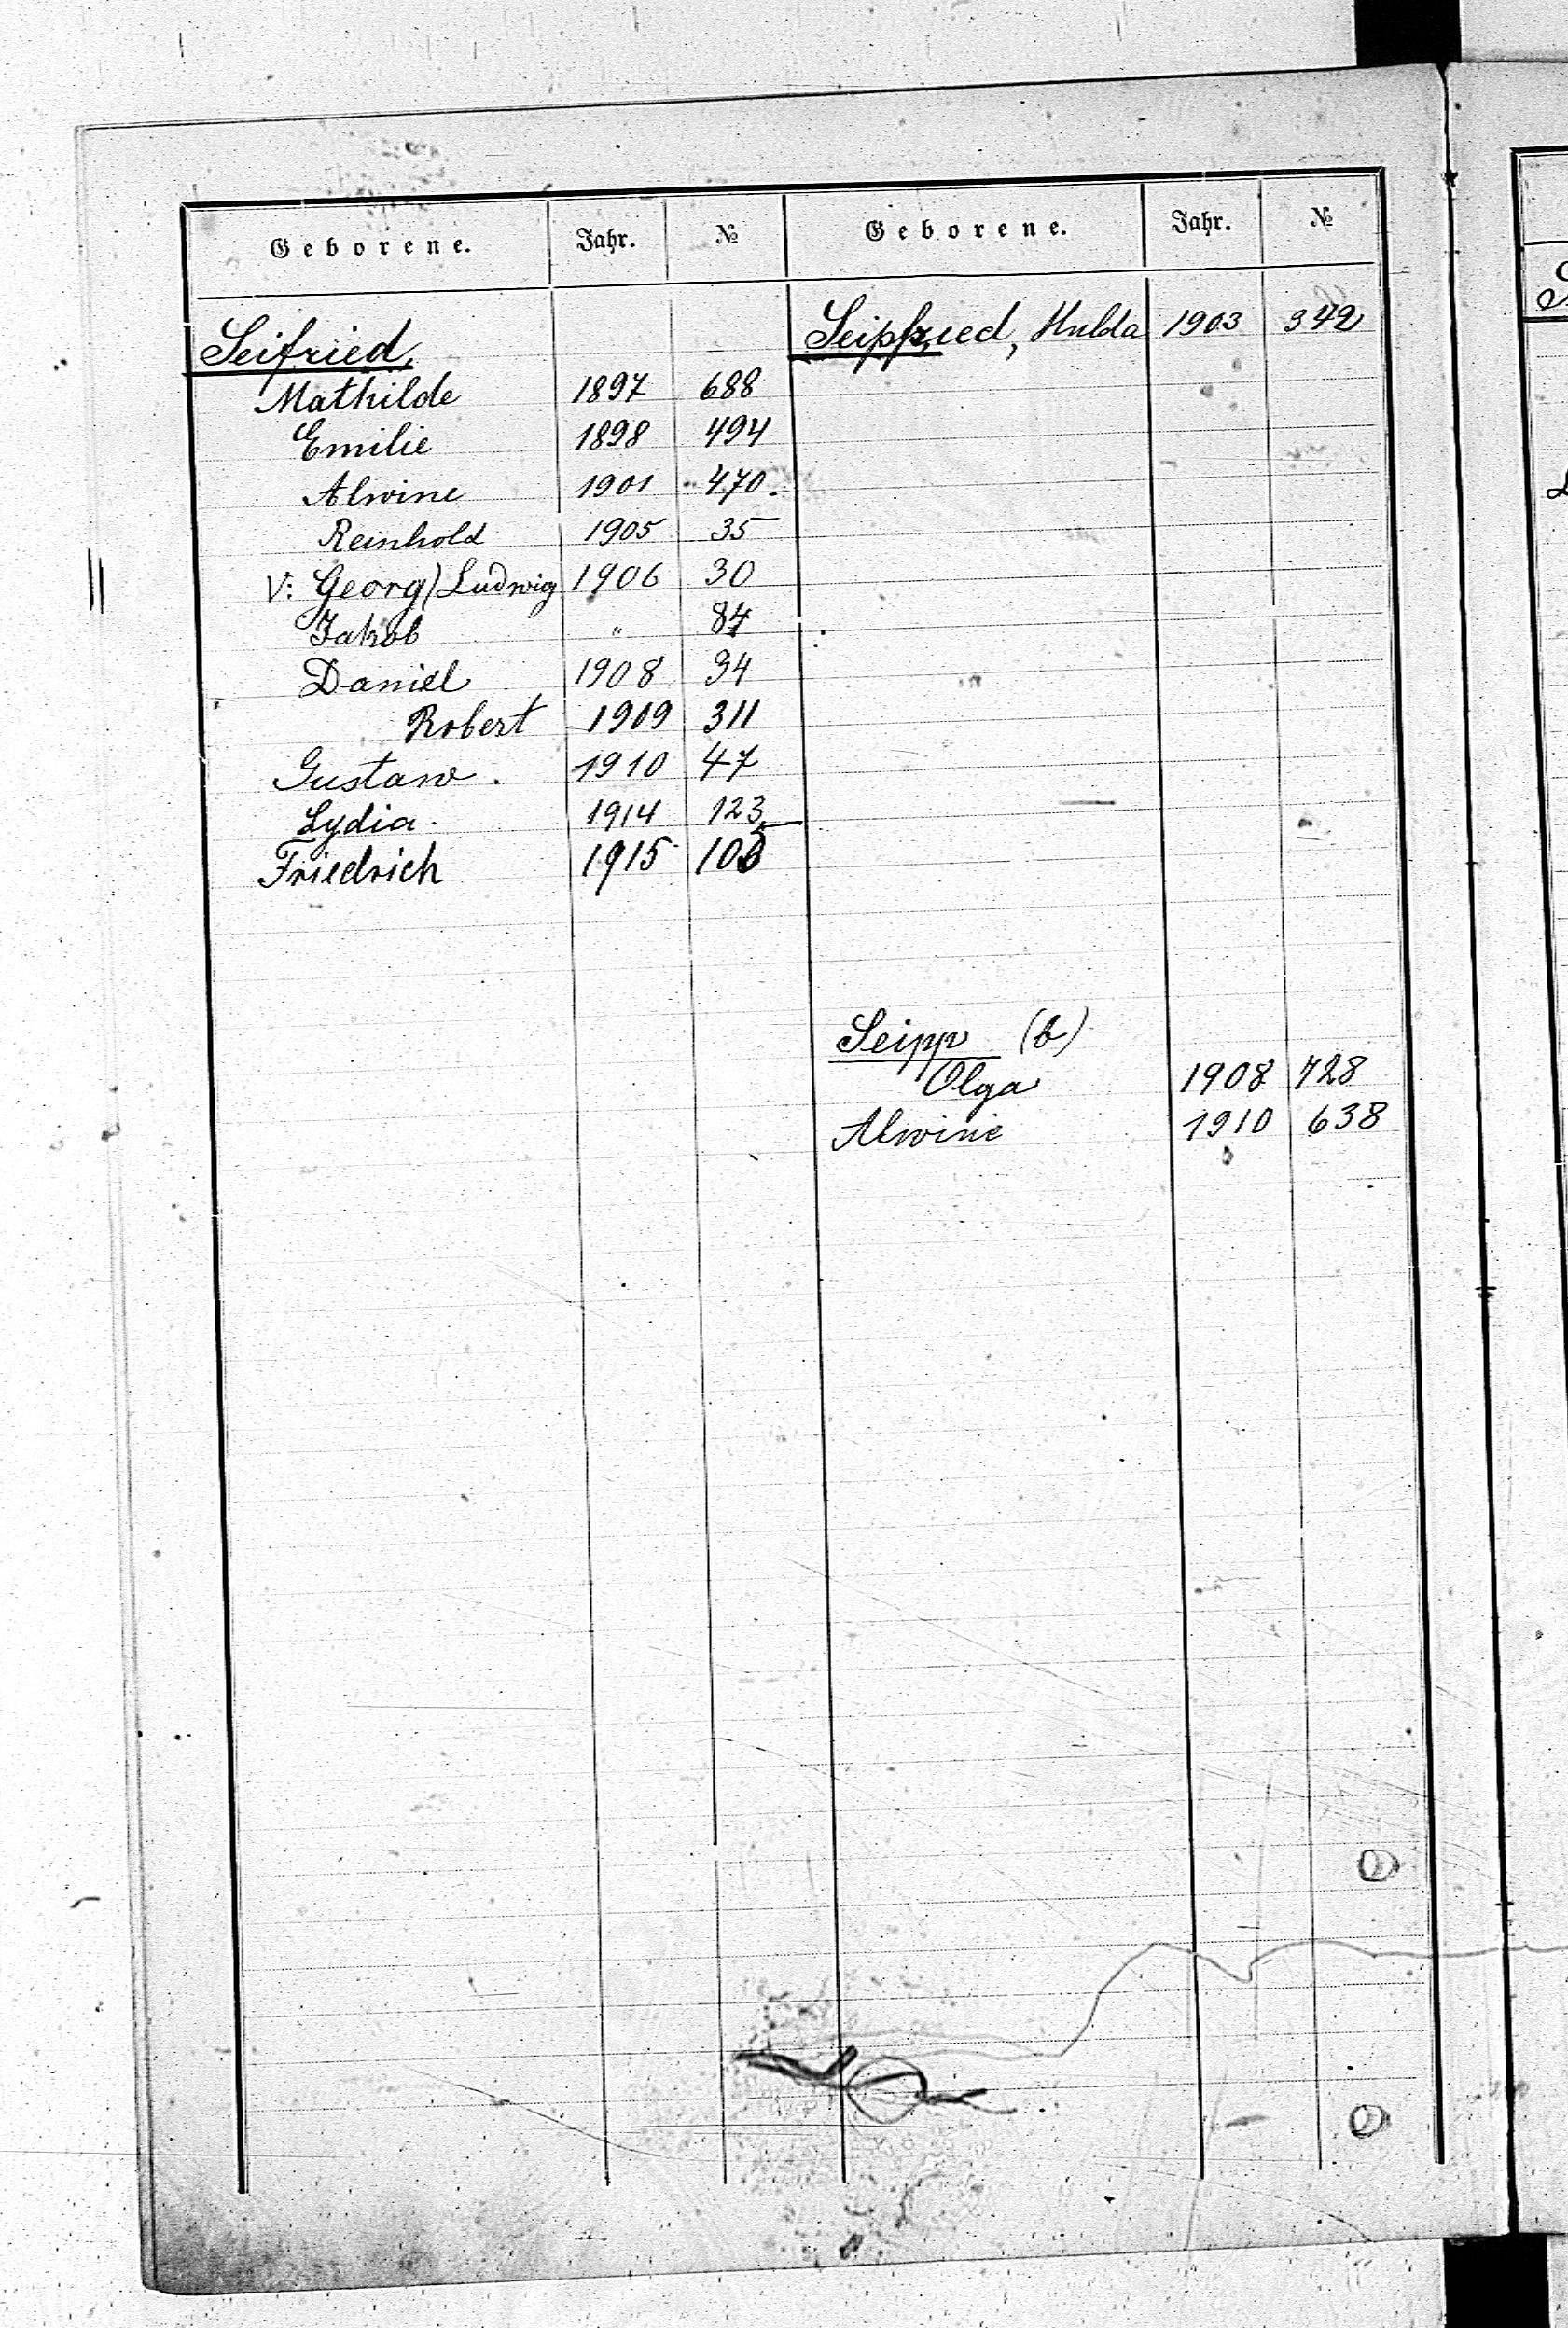 Geborene. Jahr. № Geborene. Jahr. №
Seifried,
Mathilde 1897 688
Emilie 1898 494
Alwine 1901 470.
Reinhold 1905 35
V: Georg) Ludwig 1906 30
Jakob " 84
Daniel 1908 34
Robert 1909 311
Gustaw. 1910 47
Lydia. 1914 123
Friedrich 1915
Hulda 1903 342
Seipp (b)
Olga 1908 728
Alwine 1910 638